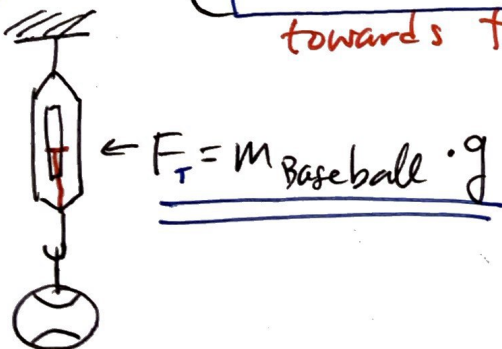 towards t
← F_T = m_Baseball · g